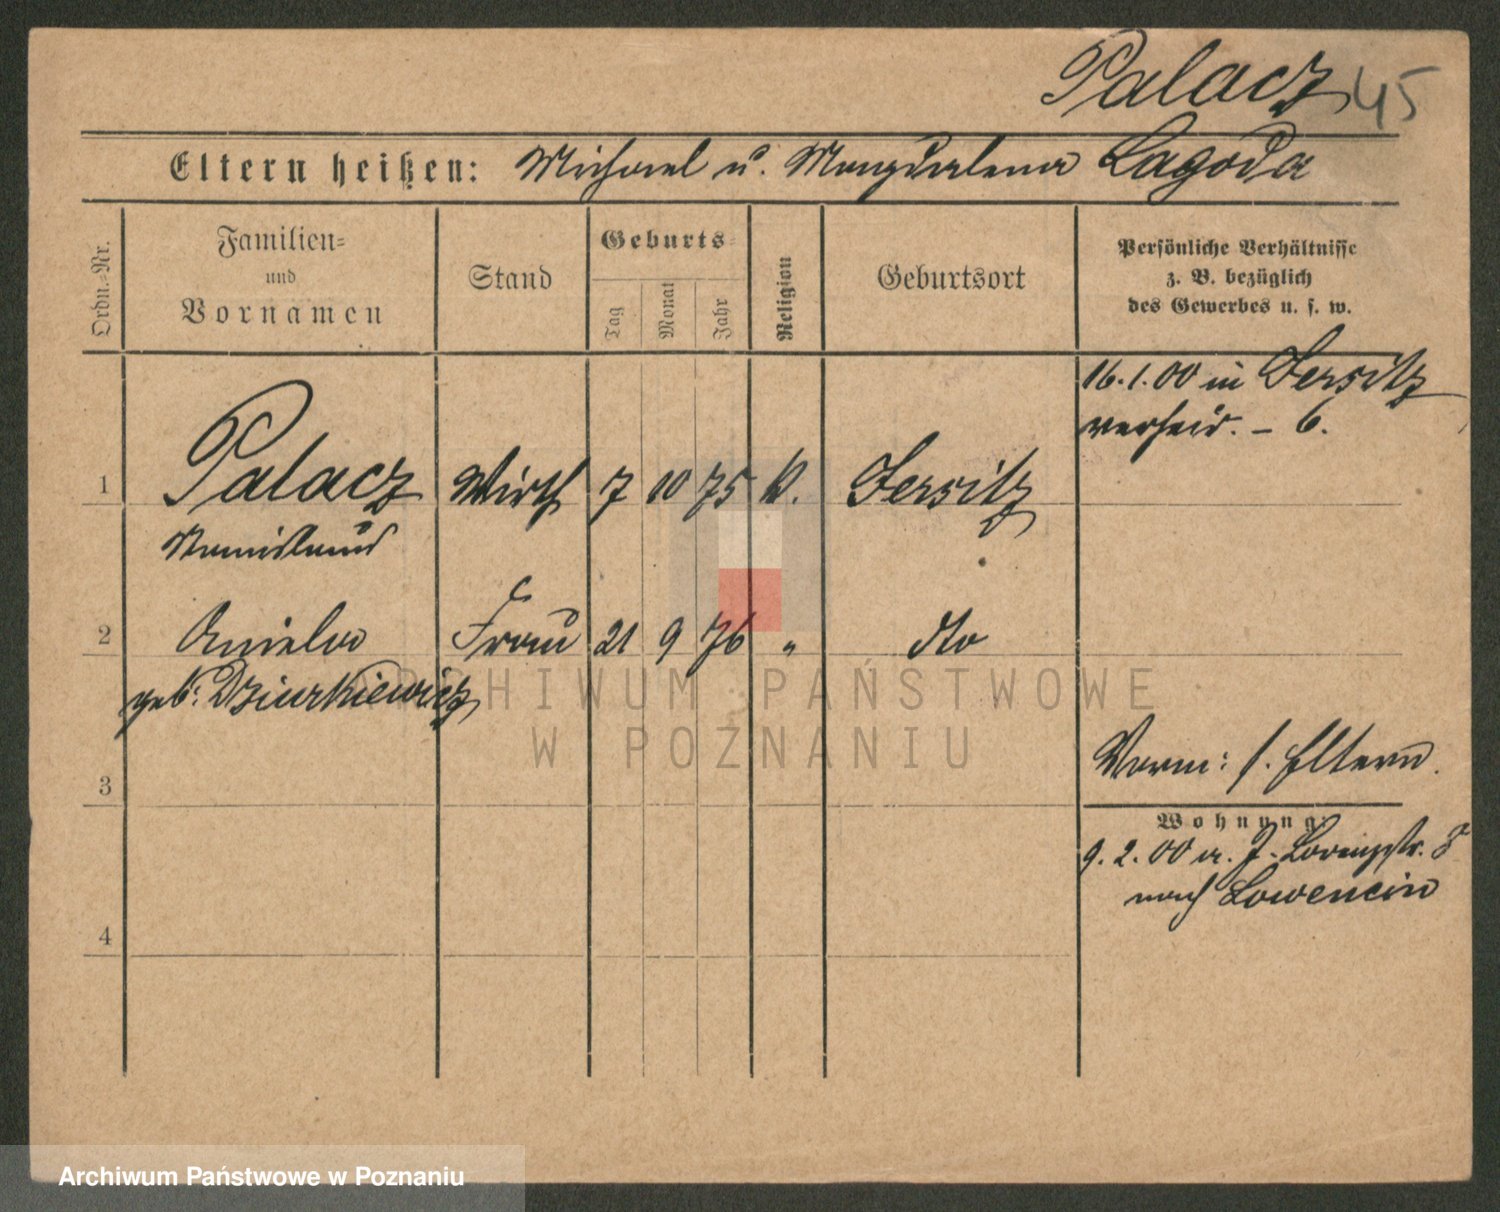 Palacz 45
Eltern heißen: Michael u. Magdalena Lagoda
Ordn.-Nr.
Familien-
und
Vornamen
Stand
Geburts-
Tag
Monat
Jahr
Religion
Geburtsort
Persönliche Verhältnisse
z. B. bezüglich
des Gewerbes u. s. w.
16.1.00 in Jersitz
verheir. – 6.
1 Palacz Wirth 7 10 75 k. Jersitz
2 Aniela Frau 21 9 76 " dto
geb. Dziurkiewicz
Vorm: s. Eltern.
3
Wohnung:
9.2.00 a. J.
nach Lowencin
4
ARCHIWUM PAŃSTWOWE
W POZNANIU
Archiwum Państwowe w Poznaniu